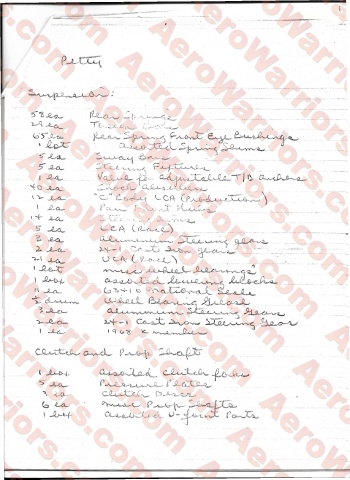 Petty
Suspension:
58 ea Rear Springs
29 ea Torsion Bars
65 ea Rear Spring Front Eye Bushings
1 lot assorted Spring Shims
5 ea Sway Bars
5 ea Steering
1 ea for adjustable T/B anchors
40 ea Shock absorbers
12 ea "C" Body LCA (Production)
1 ea Front Hubs
14 ea
5 ea LCA (Race)
3 ea aluminum Steering gears
2 ea 24-1 Cast Iron gears
21 ea UCA (Race)
1 lot misc wheel bearings
1 box assorted lowering blocks
1 ea 63410 national Seals
drum Wheel Bearing Grease
3 ea aluminum Steering Gears
2 ea 24-1 Cast Iron Steering Gear
1 ea 1968 K member
Clutch and Prop Shaft
1 box assorted Clutch forks
5 ea Pressure Plates
3 ea Clutch Discs
6 ea misc Prop Shafts
1 box assorted U-Joint Parts
AeroWarriors.com